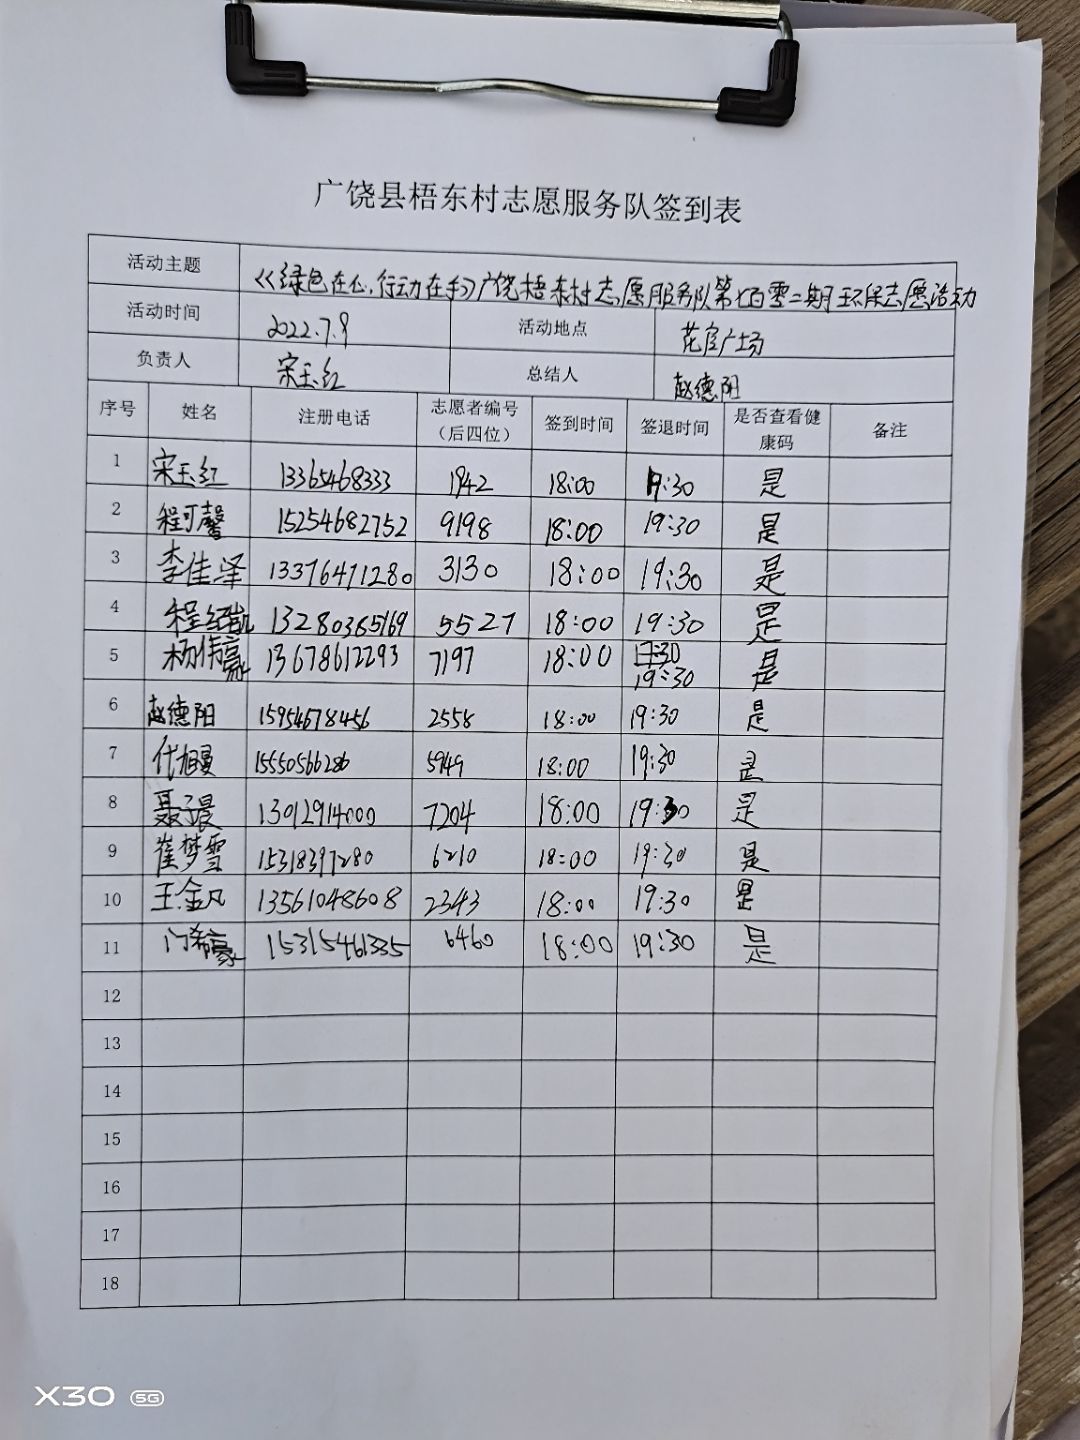 广饶县梧东村志愿服务队签到表
活动主题 《绿色在心,行动在手》广饶梧东村志愿服务队第七百零二期环保志愿活动
活动时间 2022.7.9 活动地点 花官广场
负责人 宋玉红 总结人 赵德阳
序号 姓名 注册电话 志愿者编号（后四位） 签到时间 签退时间 是否查看健康码 备注
1 宋玉红 13365468333 1942 18:00 19:30 是
2 程可馨 15254682752 9198 18:00 19:30 是
3 李佳泽 13376471280 3130 18:00 19:30 是
4 程绍凯 13280365169 5527 18:00 19:30 是
5 杨伟豪 13678612293 7197 18:00 19:30 是
6 赵德阳 15954678456 2558 18:00 19:30 是
7 代旭曼 15550566286 5949 18:00 19:30 是
8 聂子晨 13012914000 7204 18:00 19:30 是
9 崔梦雪 15318397280 6210 18:00 19:30 是
10 王金凡 13561048608 2343 18:00 19:30 是
11 门希豪 15315461335 6460 18:00 19:30 是
12
13
14
15
16
17
18
X30 5G